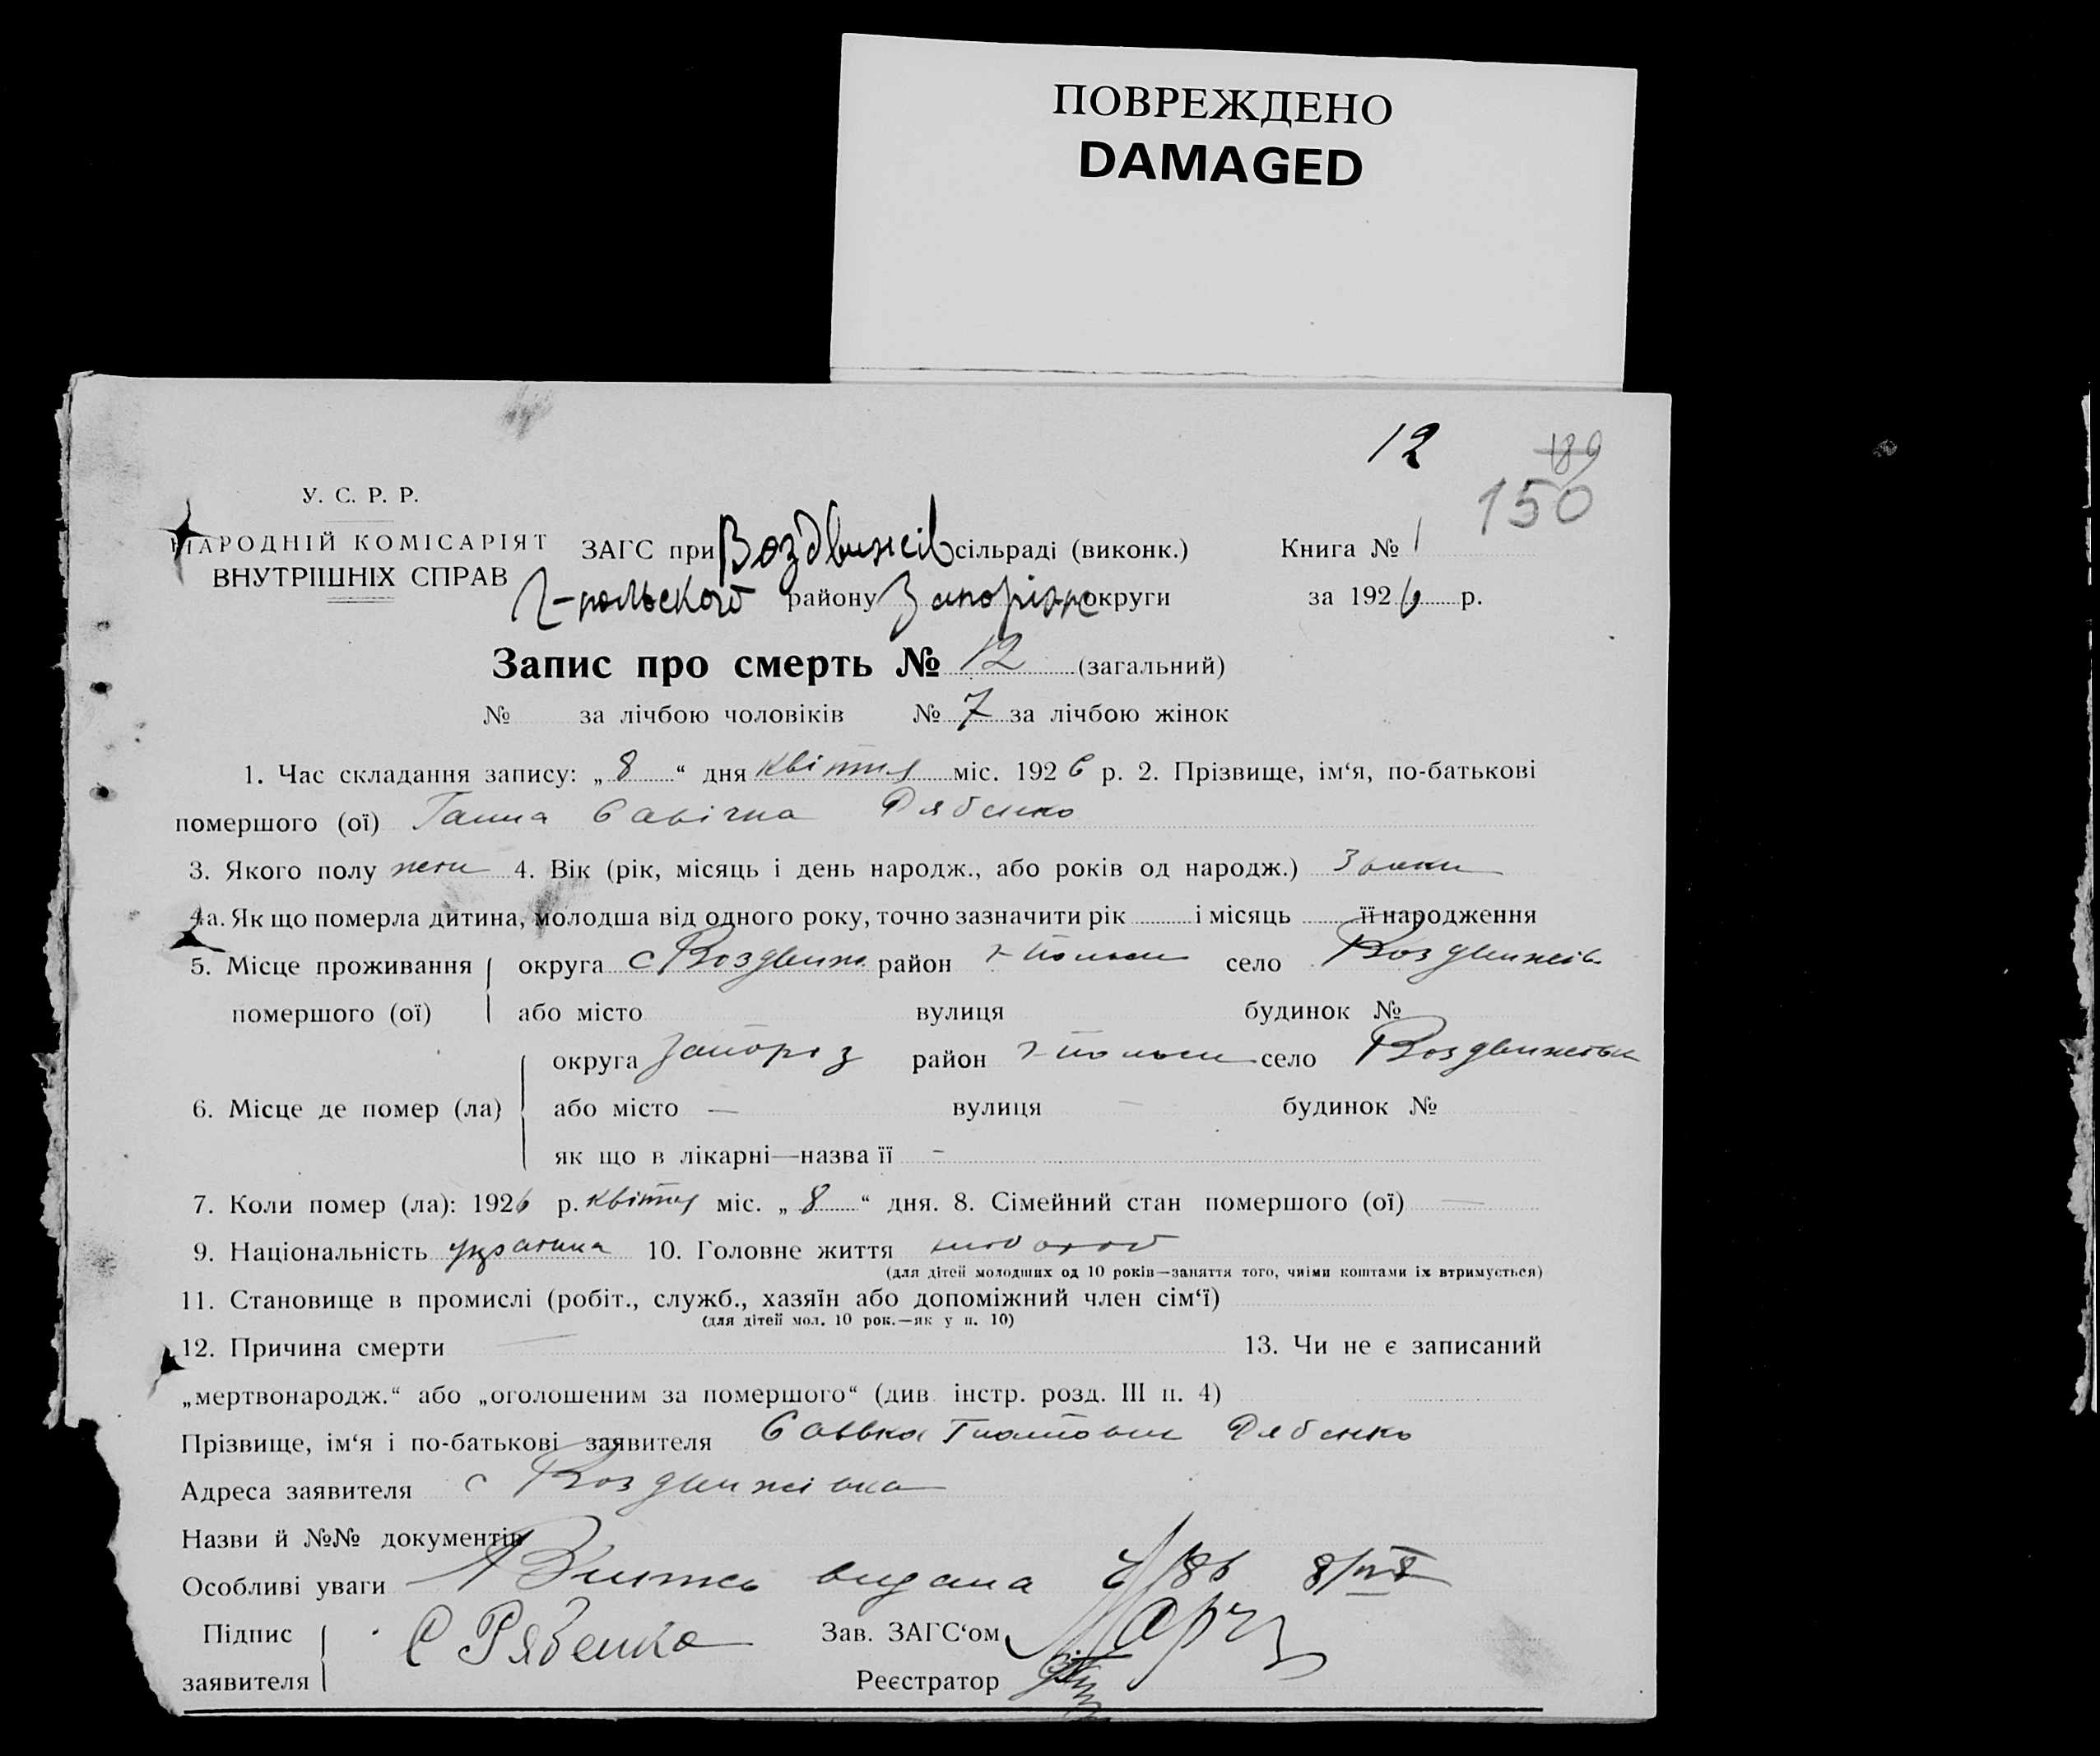 ПОВРЕЖДЕНО
DAMAGED
12
189
150
У. С. Р. Р.
НАРОДНІЙ КОМІСАРІЯТ
ВНУТРІШНІХ СПРАВ
ЗАГС при Воздвижів сільраді (виконк.) Книга № 1
Г-польского району Запоріж округи за 1926 р.
Запис про смерть № 12 (загальний)
№ за лічбою чоловіків № 7 за лічбою жінок
1. Час складання запису: „ 8 “ дня квітня міс. 1926 р. 2. Прізвище, ім‘я, по-батькові
помершого (ої) Ганна Савічна Рябенко
3. Якого полу жети 4. Вік (рік, місяць і день народж., або років од народж.) 3
4а. Як що померла дитина, молодша від одного року, точно зазначити рік і місяць її народження
5. Місце проживання округа с Воздвиж район Г-польск село Воздвижів
помершого (ої) або місто вулиця будинок №
округа Запоріз район Г-польск село Воздвижівк
6. Місце де помер (ла) або місто — вулиця — будинок №
як що в лікарні—назва її –
7. Коли помер (ла): 1926 р. квітня міс. „ 8 “ дня. 8. Сімейний стан помершого (ої) —
9. Національність 10. Головне життя
(для дітей молодших од 10 років—заняття того, чиїми коштами їх втримується)
11. Становище в промислі (робіт., служб., хазяїн або допоміжний член сім‘ї)
(для дітей мол. 10 рок.—як у п. 10)
12. Причина смерти — 13. Чи не є записаний
„мертвонародж.“ або „оголошеним за помершого“ (див. інстр. розд. III п. 4)
Прізвище, ім‘я і по-батькові заявителя Савка Рябенко
Адреса заявителя с Воздвижівка
Назви й №№ документів
Особливі уваги Випись видана
Підпис С Рябенко Зав. ЗАГС‘ом
заявителя Реєстратор